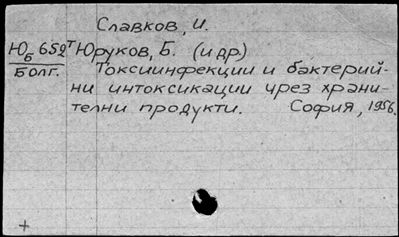 Славков, И.
Юб 652т Юруков, Б. (и др)
Болг. Токсиинфекции и бактерий-
ни интоксикации чрез храни-
телни продукти. София, 1956.
+